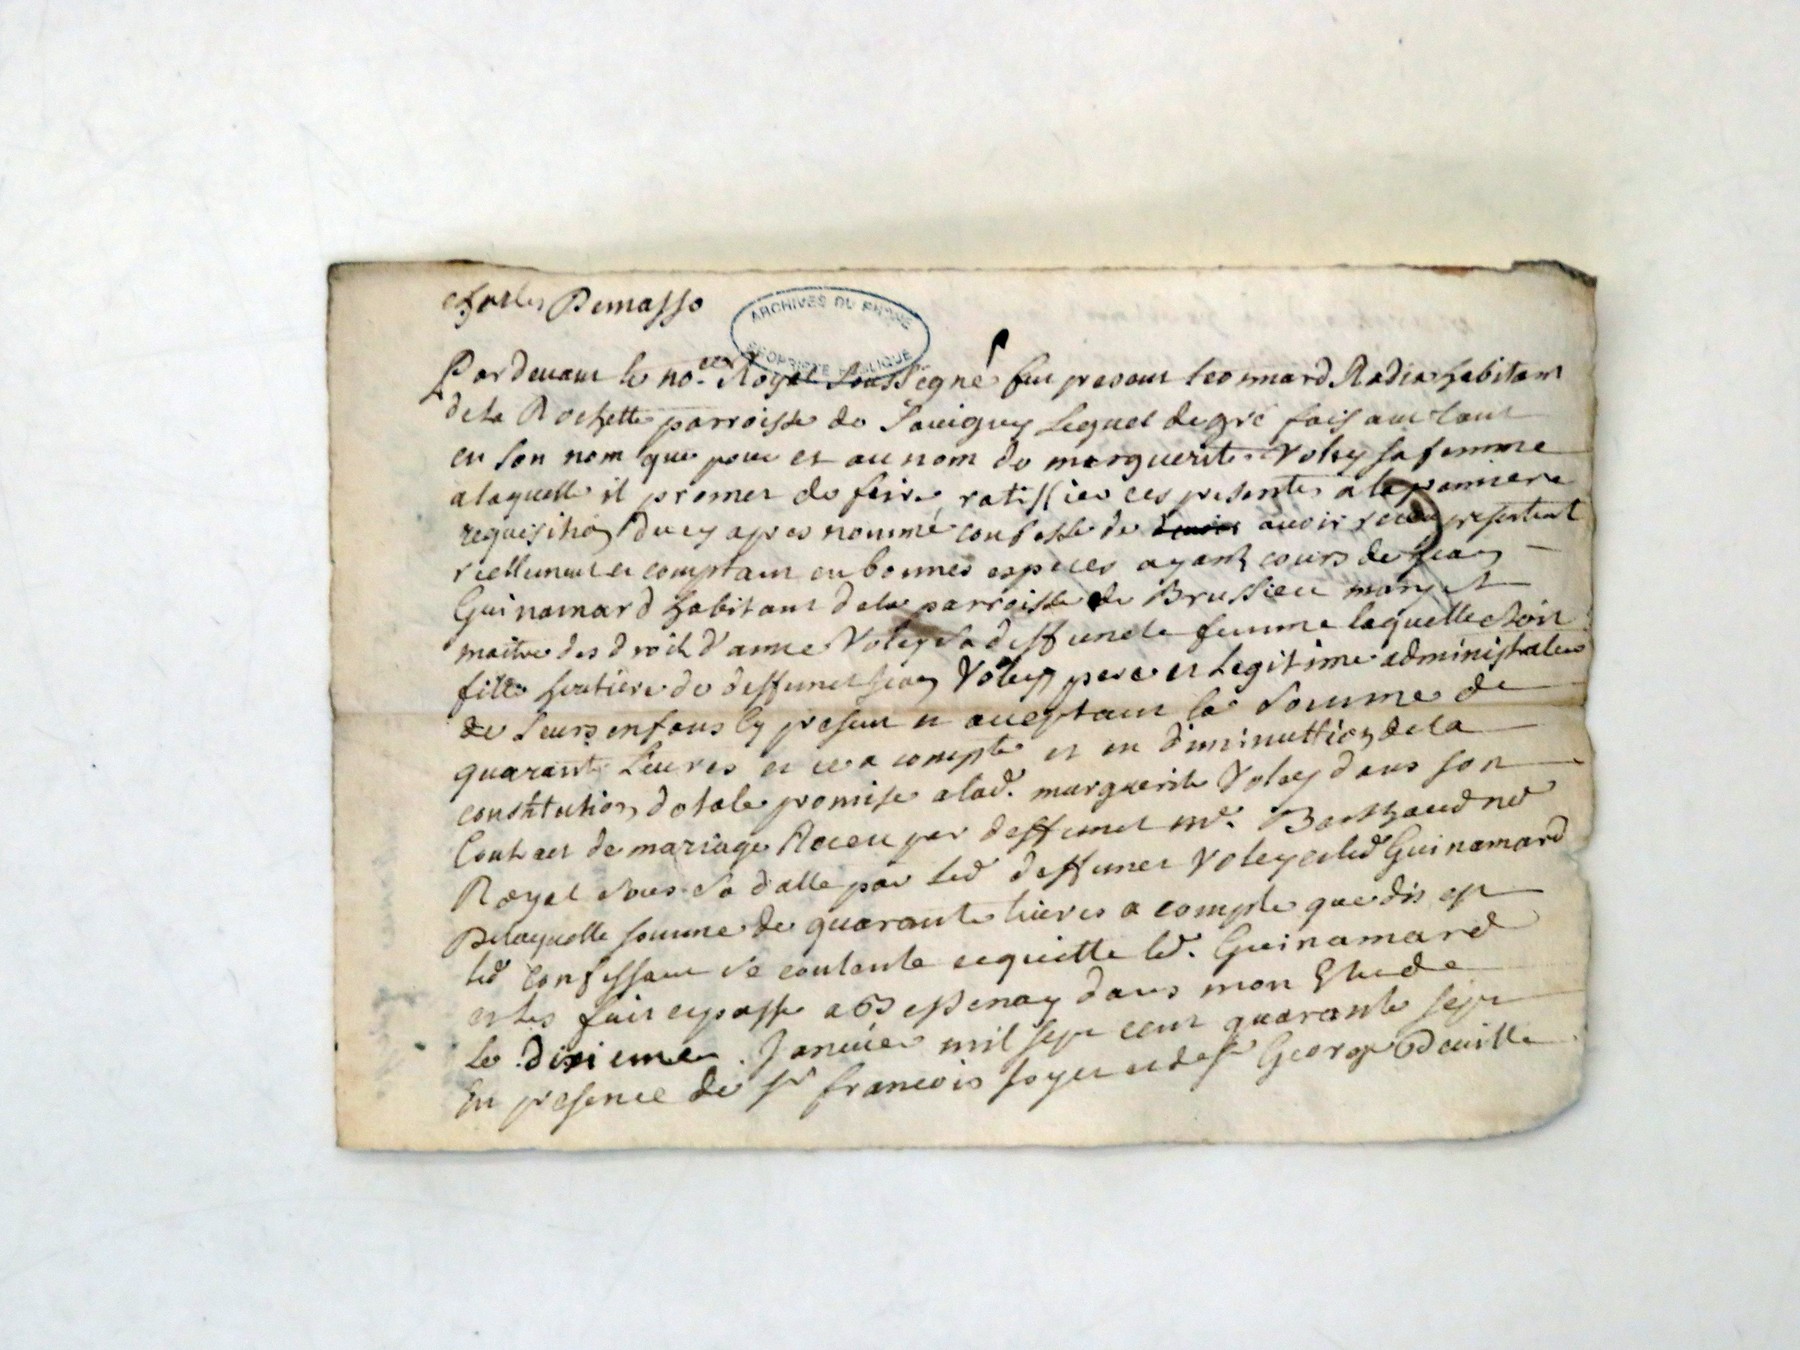 Demasso
ARCHIVES DU RHONE
PROPRIETE PUBLIQUE
Pardevant le no.re Royal soussigné fut present Leonnard Radix habitant
de la Rochette parroisse de Savigny Lequel de gré faisant tant
en son nom que pour et au nom de marguerite Voley sa femme
a laquelle il promet de faire ratiffier ces presentes a la premiere
requisition du cy apres nommé confesse de avoir receu presentement
reellement et comptant en bonnes especes ayant cours de Jean
Guinamard habitant de la parroisse de Brussieu mary et
maitre des droits d'anne Voley sa deffuncte femme laquelle etoit
fille heritiere de deffunct Jean Voley pere et Legitime administrateur
de Leurs enfans Cy present et acceptant la somme de
quarante Livres et ce a compte et en diminuttion de la
constitution dotale promise a lad. marguerite Voley dans son
Contract de mariage Receu par deffunct me. Berthaud no.re
Royal sous sa datte par led deffunct Voley et led Guinamard
De laquelle somme de quarante livres a compte que dit est
led Confessant se contente et quitte led. Guinamard
et les fait et passé a Bessenay dans mon Etude
le dixieme Janvier mil sept cent quarante sept
En presence de sr francois soyer et de sr George